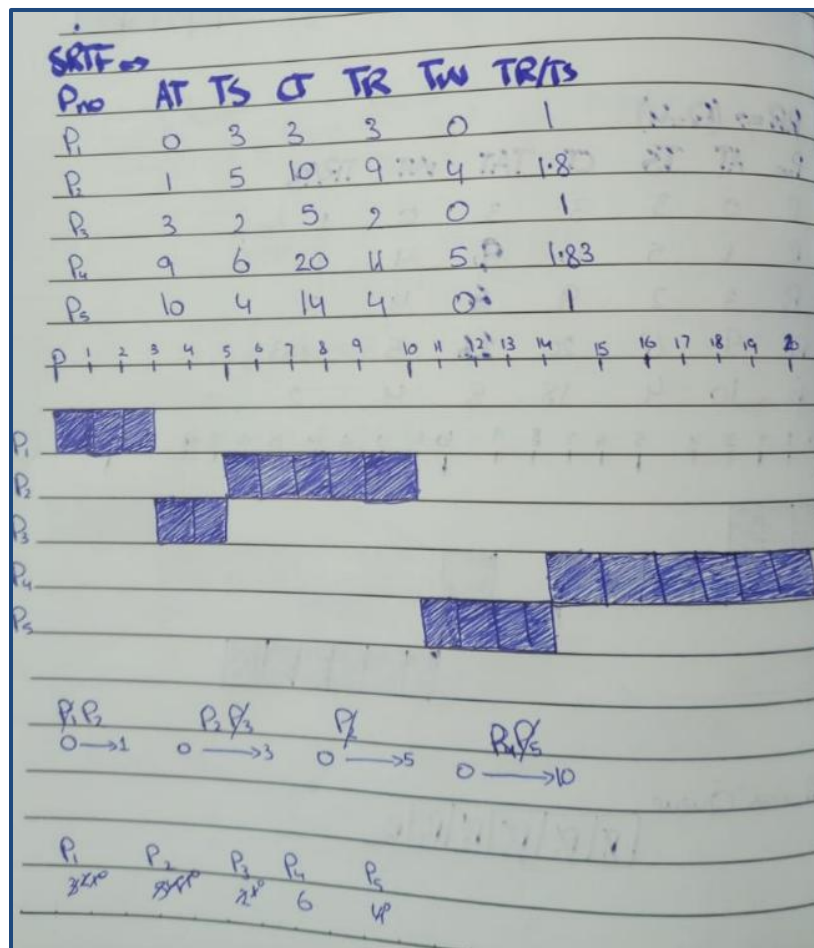 SRTF
Pno AT TS CT TR TW TR/TS
P1 0 3 3 3 0 1
P2 1 5 10 9 4 1.8
P3 3 2 5 2 0 1
P4 9 6 20 11 5 1.83
P5 10 4 14 4 0 1
1 2 3 4 5 6 7 8 9 10 11 12 13 14 15 16 17 18 19 20
P1
P2
P3
P4
P5
P1 P2 P2 P3 P2 P4 P5
0→1 0→3 0→5 0→10
P1 P2 P3 P4 P5
6